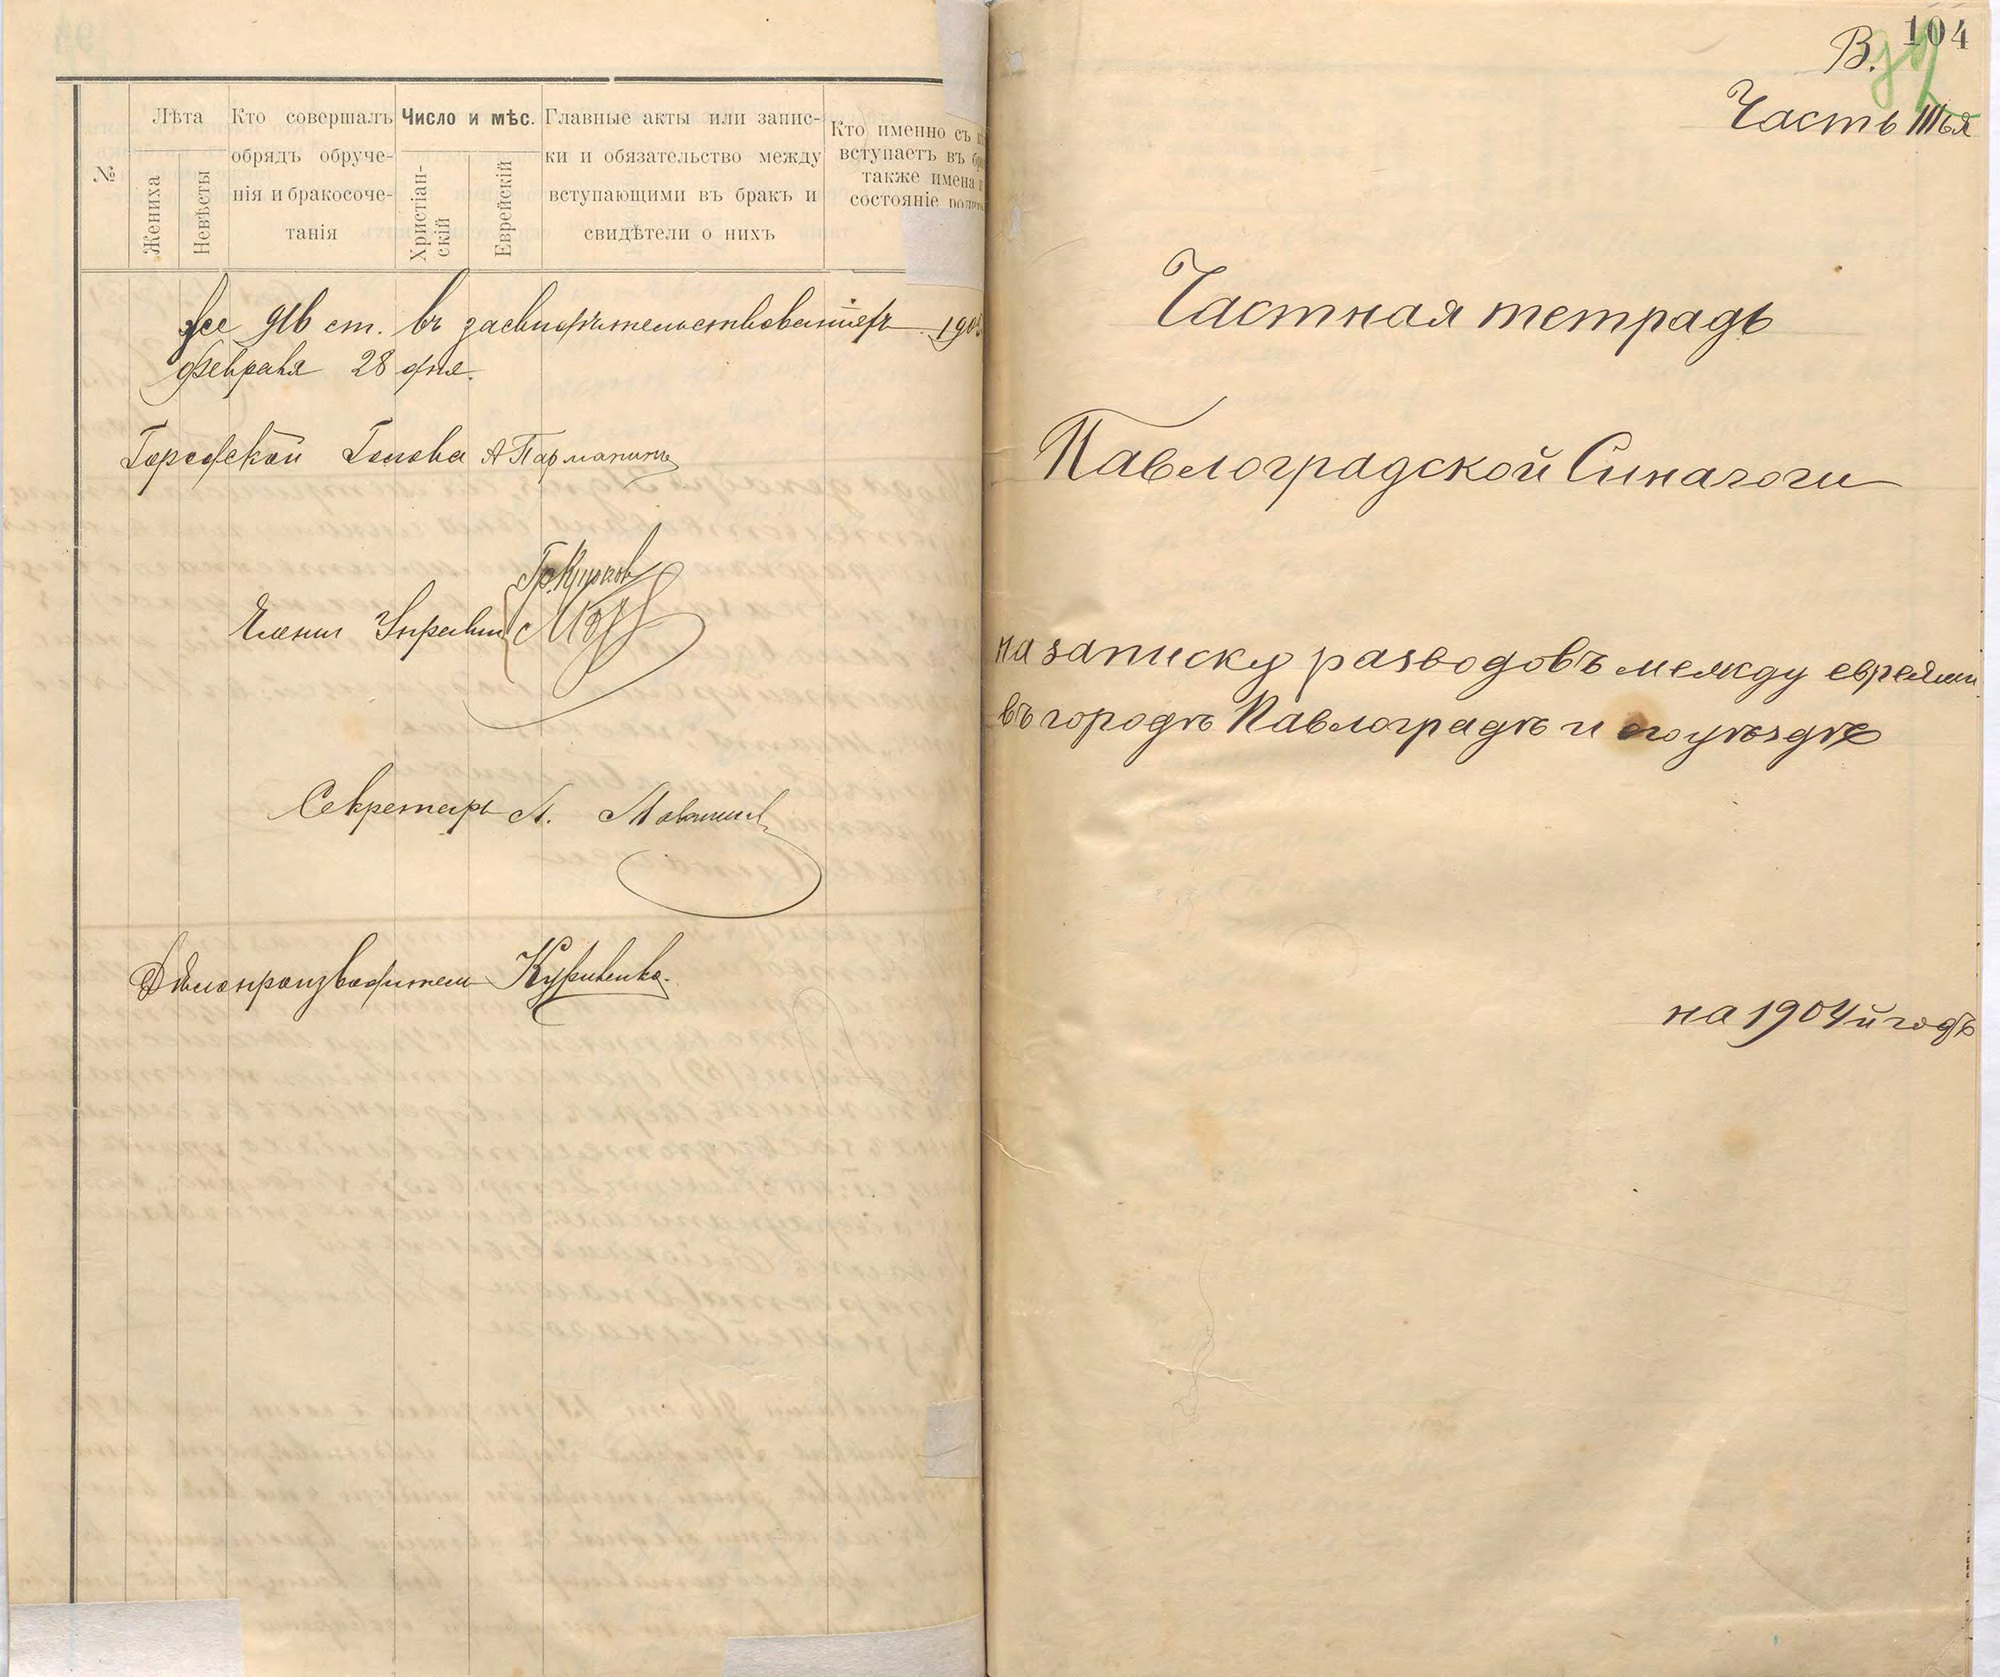 №
Лѣта
Жениха
Невѣсты
Кто совершалъ
обрядъ обруче-
нія и бракосоче-
танія
Число и мѣс.
Христіан-
скій
Еврейскій
Главные акты или запис-
ки и обязательство между
вступающими въ бракъ и
свидѣтели о нихъ
Кто именно съ
вступаетъ въ
также имена
состояніе
ст. въ
Февраля 28 дня.
Городской Голова А
Члены Управы
Секретарь А.
Дѣлопроизводитель
104
В.
Часть IIIья
Частная тетрадь
Павлоградской Синагоги
на записку разводовъ между евреями
въ городѣ Павлоградѣ и его уѣздѣ
на 1904й годъ